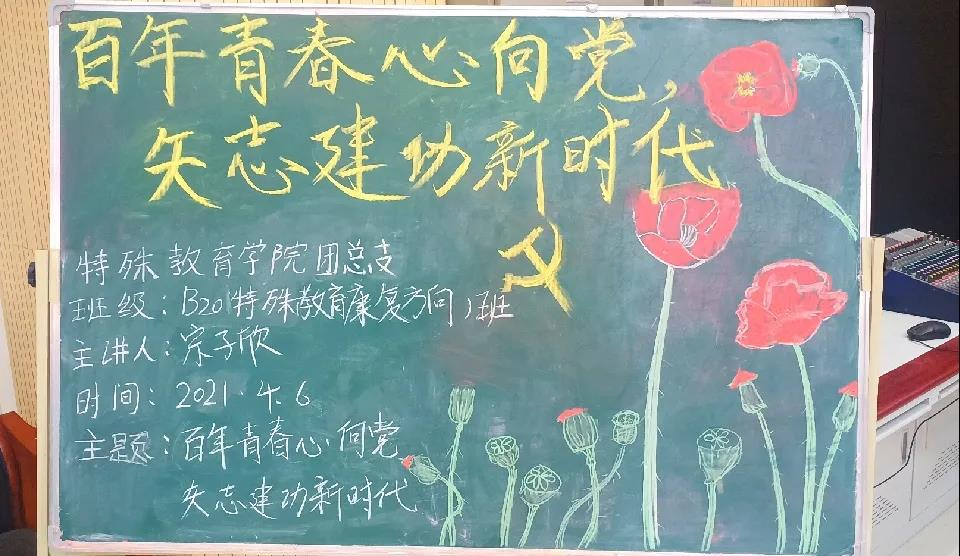 百年青春心向党，
矢志建功新时代
特殊教育学院团总支
班级：B20特殊教育康复方向1班
主讲人：宗子欣
时间：2021.4.6
主题：百年青春心向党
矢志建功新时代